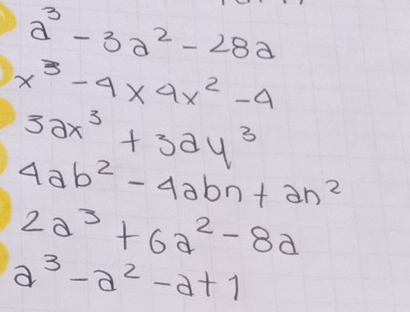 a³ - 3a² - 28a
x³ - 4x4x² - 4
3ax³ + 3ay³
4ab² - 4abn + an²
2a³ + 6a² - 8a
a³ - a² - a + 1